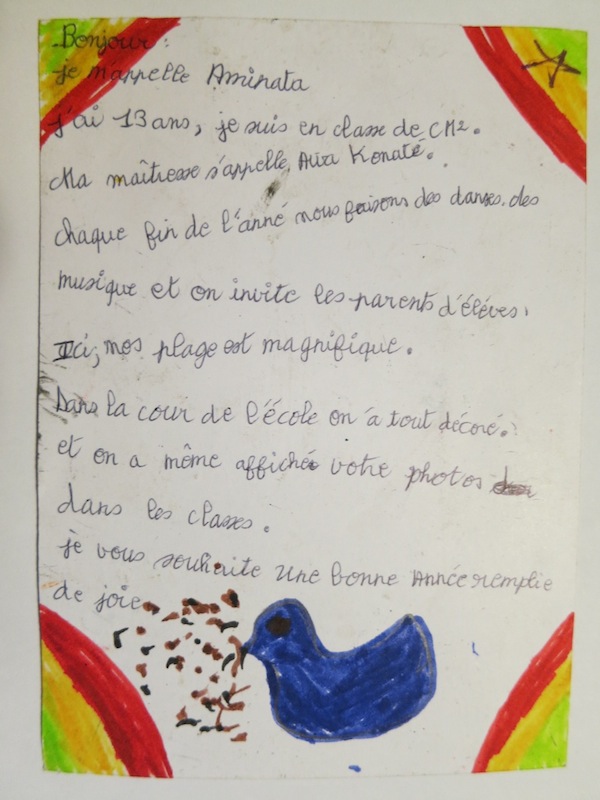 Bonjour :
je m'appelle Aminata
j'ai 13 ans, je suis en classe de CM2.
Ma maîtresse s'appelle, Awa Konaté.
chaque fin de l'anné nous faisons des danses, des
musique et on invite les parents d'élèves,
Ici, mos plage est magnifique.
Dans la cour de l'école on a tout décoré.
et on a même affichée votre photos
dans les classes.
je vous souhaite une bonne Année remplie
de joie